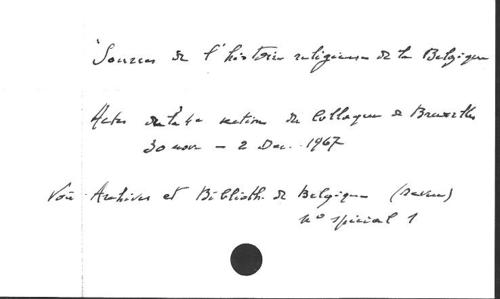 Sources de l'histoire religieuse de la Belgique
Actes de la 4e section du Colloque de Bruxelles
30 nov. - 2 Dec. 1967
Voir Archives et Biblioth. de Belgique (revue)
n° spécial 1